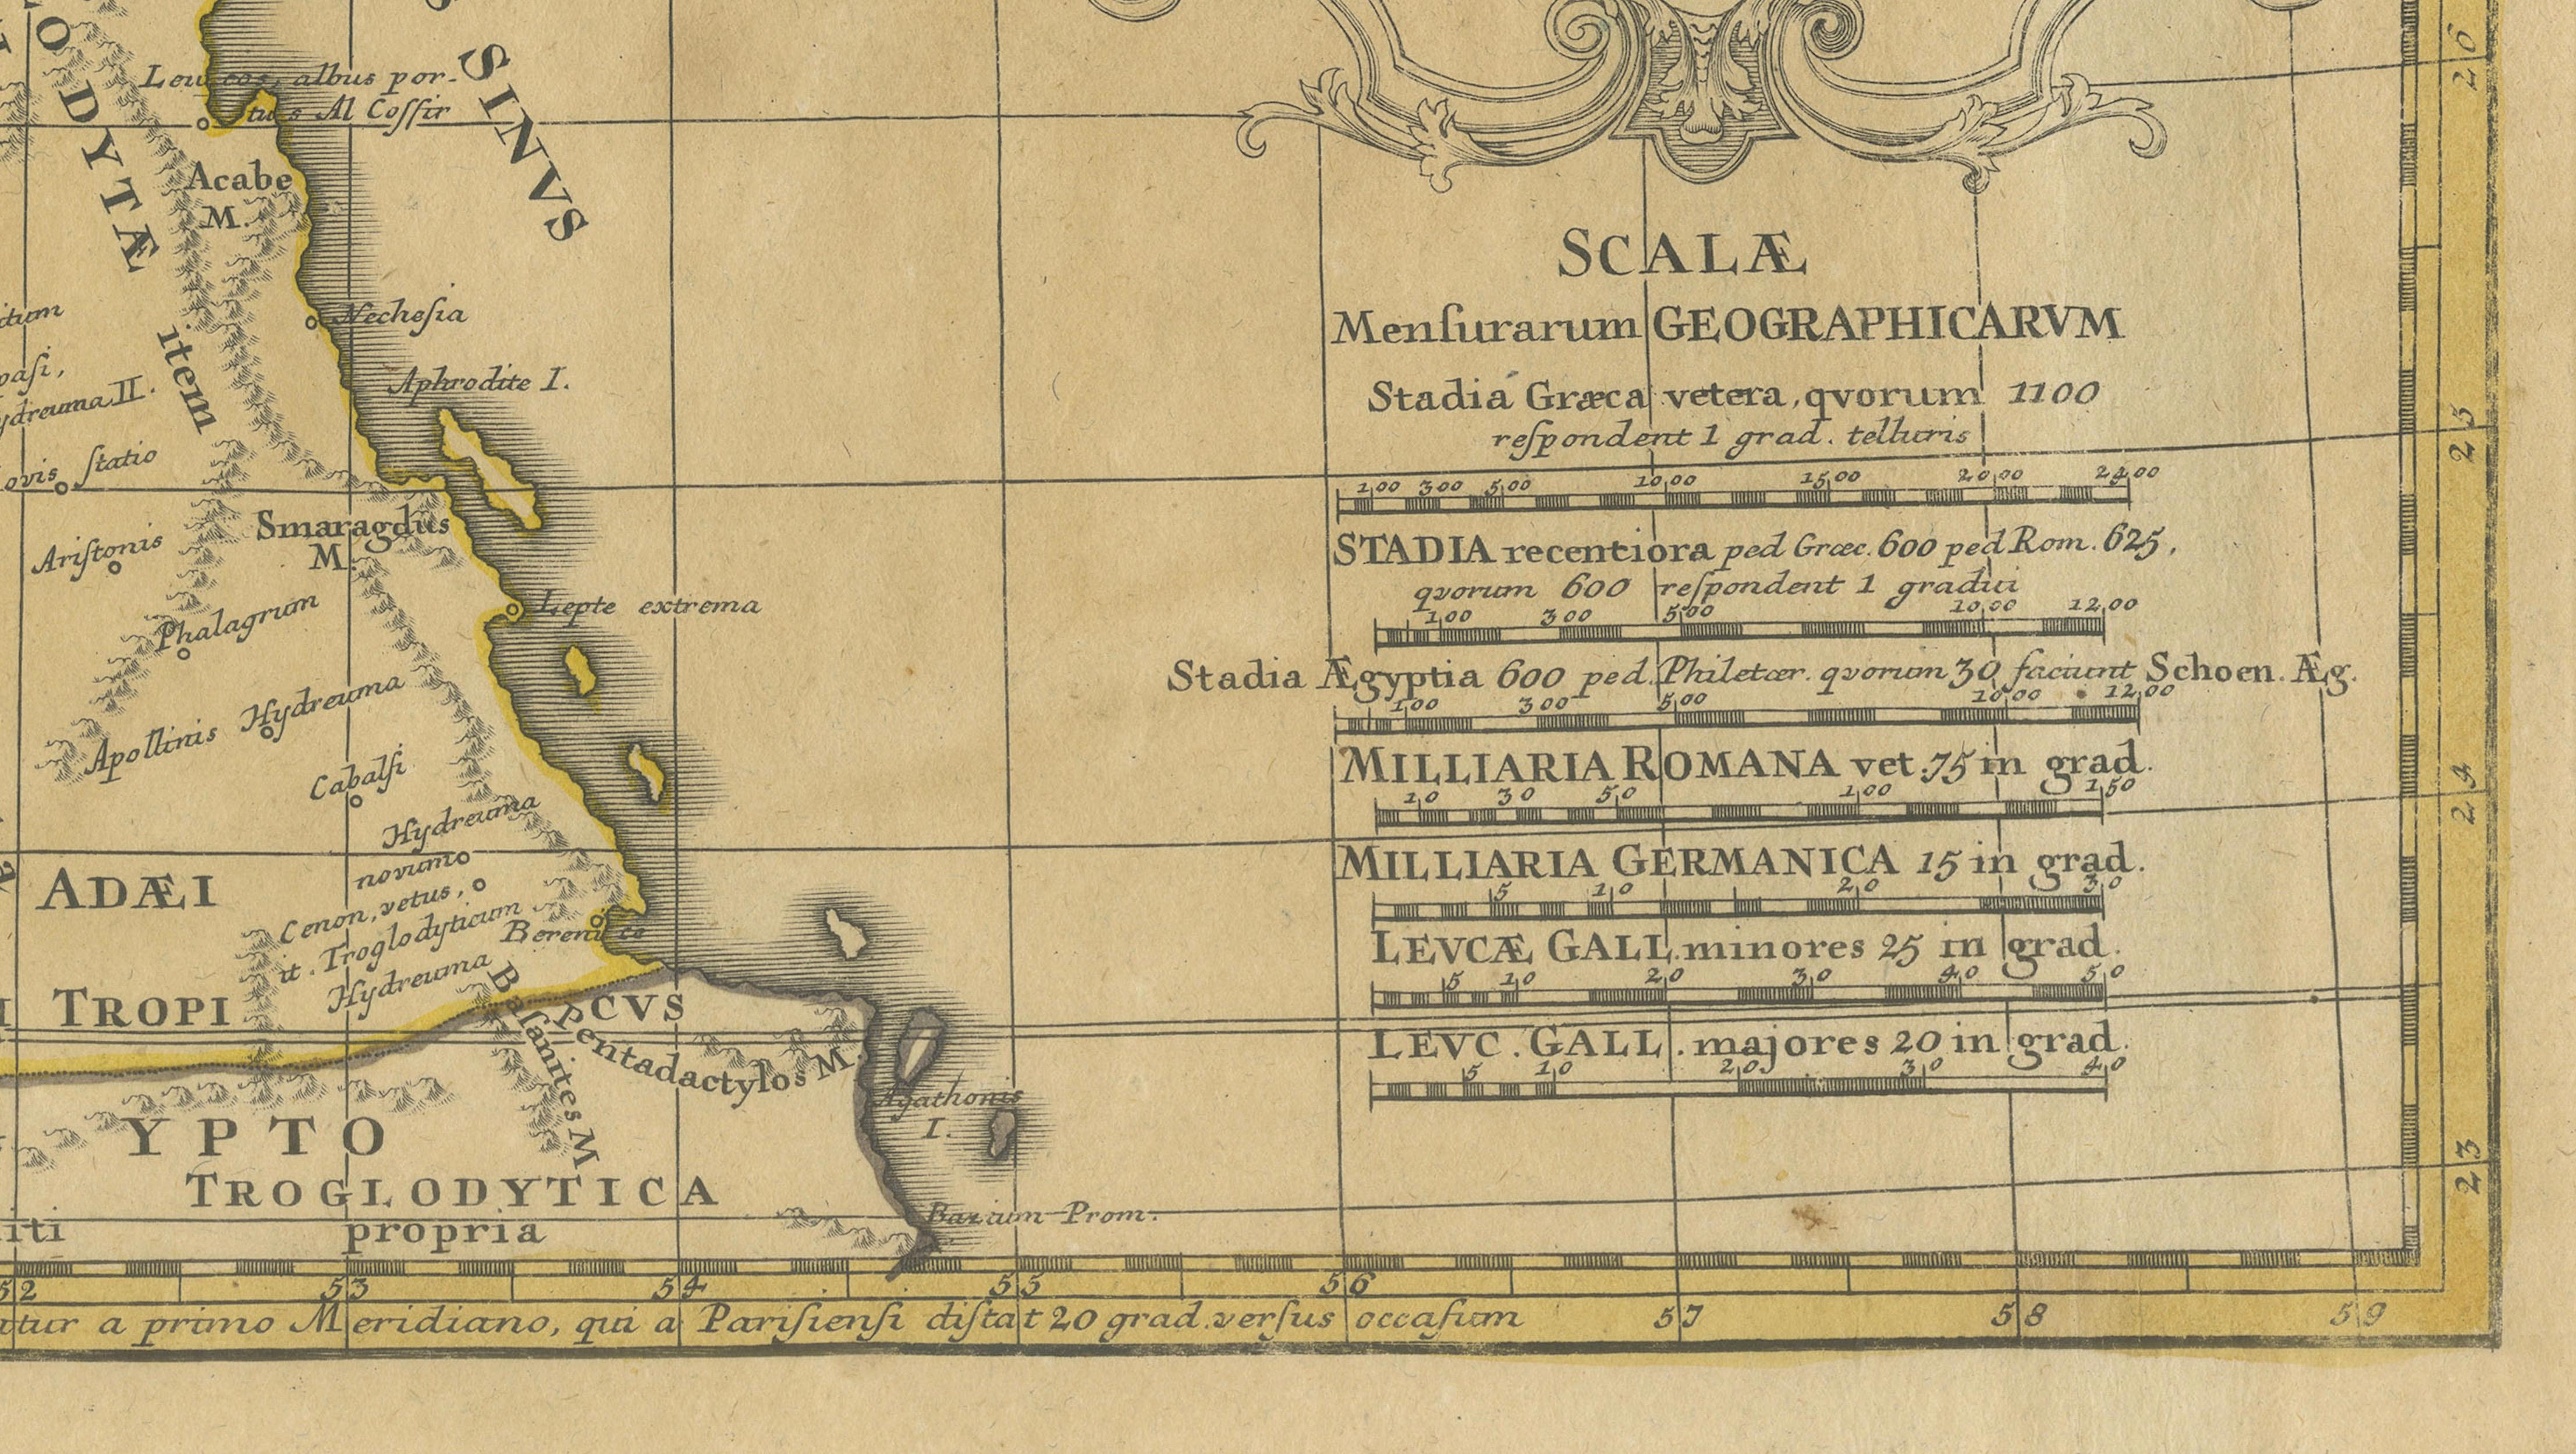 ODYTÆ
item
SINVS
Leucos, albus por-
tus Al Coſſir
Acabe
M.
Necheſia
Aphrodite I.
ydreuma II.
ovis ſtatio
Smaragdus
M.
Ariſtonis
Lepte extrema
Phalagrum
Apollinis Hydreuma
Cabalſi
Hydreuma
novum
Cenon, vetus,
it. Troglodyticum
Hydreuma
Berenice
ADÆI
TROPI CVS
Baſanites M
Pentadactylos M.
Agathonis
I.
YPTO
TROGLODYTICA
propria
Bazium Prom.
SCALÆ
Menſurarum GEOGRAPHICARVM
Stadia Græca vetera, qvorum 1100
reſpondent 1 grad. telluris
100 300 500 1000 1500 2000 2400
STADIA recentiora ped Græc. 600 ped Rom. 625,
qvorum 600 reſpondent 1 gradui
100 300 500 1000 1200
Stadia Ægyptia 600 ped. Philetær. qvorum 30 faciunt Schoen. Æg.
100 300 500 1000 1200
MILLIARIA ROMANA vet. 75 in grad.
10 30 50 100 150
MILLIARIA GERMANICA 15 in grad.
5 10 20 30
LEVCÆ GALL. minores 25 in grad.
5 10 20 30 40 50
LEVC. GALL. majores 20 in grad.
5 10 20 30 40
26
25
24
23
52 53 54 55 56 57 58 59
atur a primo Meridiano, qui a Pariſienſi diſtat 20 grad. verſus occaſum